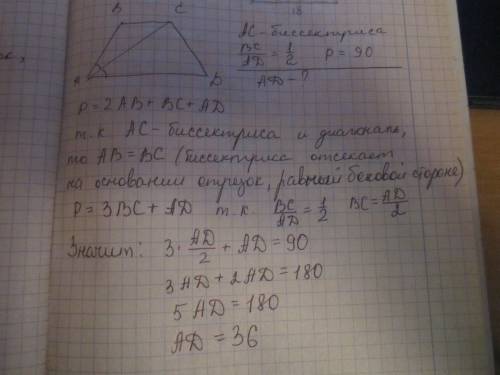 18
B C
A D
AC - биссектриса
BC/AD = 1/2 P = 90
AD - ?
P = 2AB + BC + AD
т.к AC - биссектриса и диагональ,
то AB = BC (биссектрисс отсекает
на основании отрезок, равный боковой стороне)
P = 3BC + AD т.к. BC/AD = 1/2 BC = AD/2
Значит: 3 · AD/2 + AD = 90
3AD + 2AD = 180
5AD = 180
AD = 36